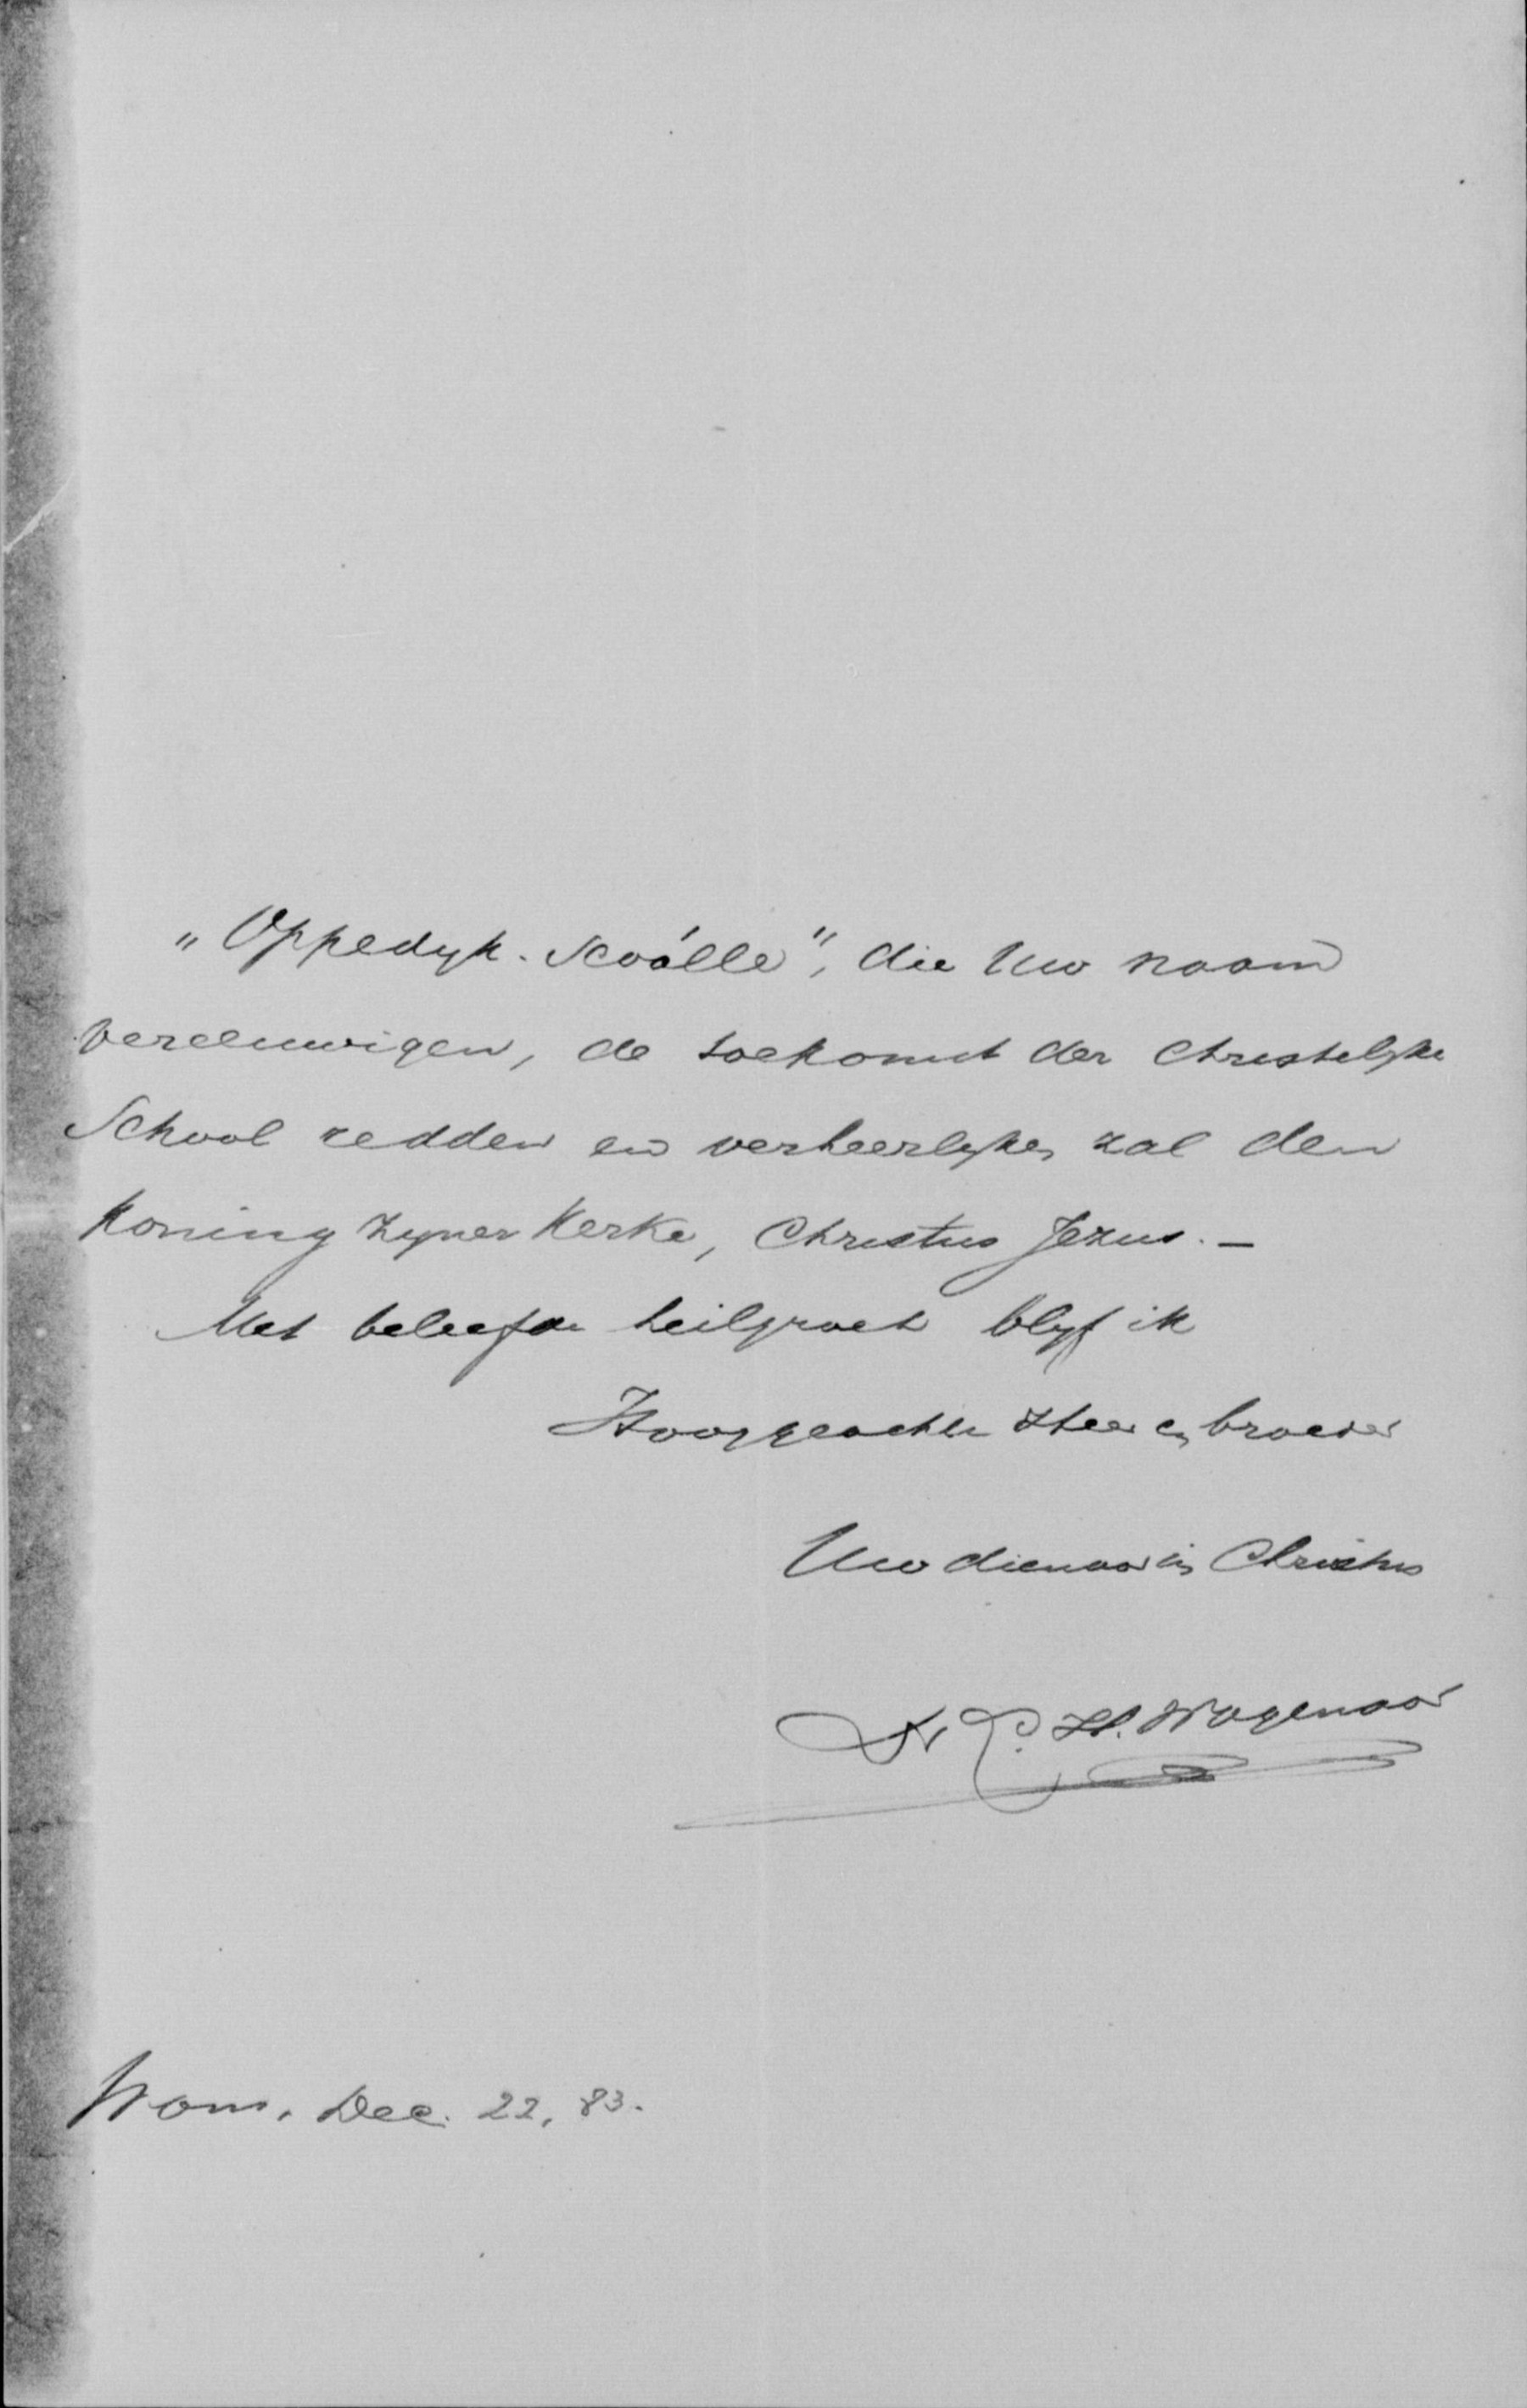 „Oppedyk-Scoálle", die Uw naam
vereeuwigen, de toekomst der Christelyke
School redden en verheerlyken zal den
Koning Zyner Kerke, Christus Jezus. —
Met beleefde heilgroet blyf ik
Hooggeachte Heer en broeder
Uw dienaar in Christus
Dr L. H. Wagenaar
Wons, Dec. 22, 83.